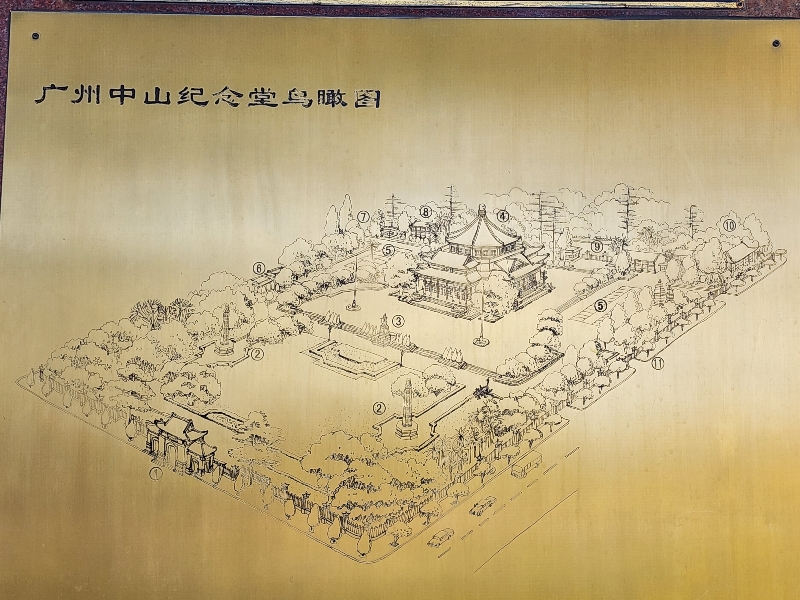 广州中山纪念堂鸟瞰图
⑦ ⑧ ④ ⑩
⑤ ⑨
⑥
⑤
③
② ⑪
②
①